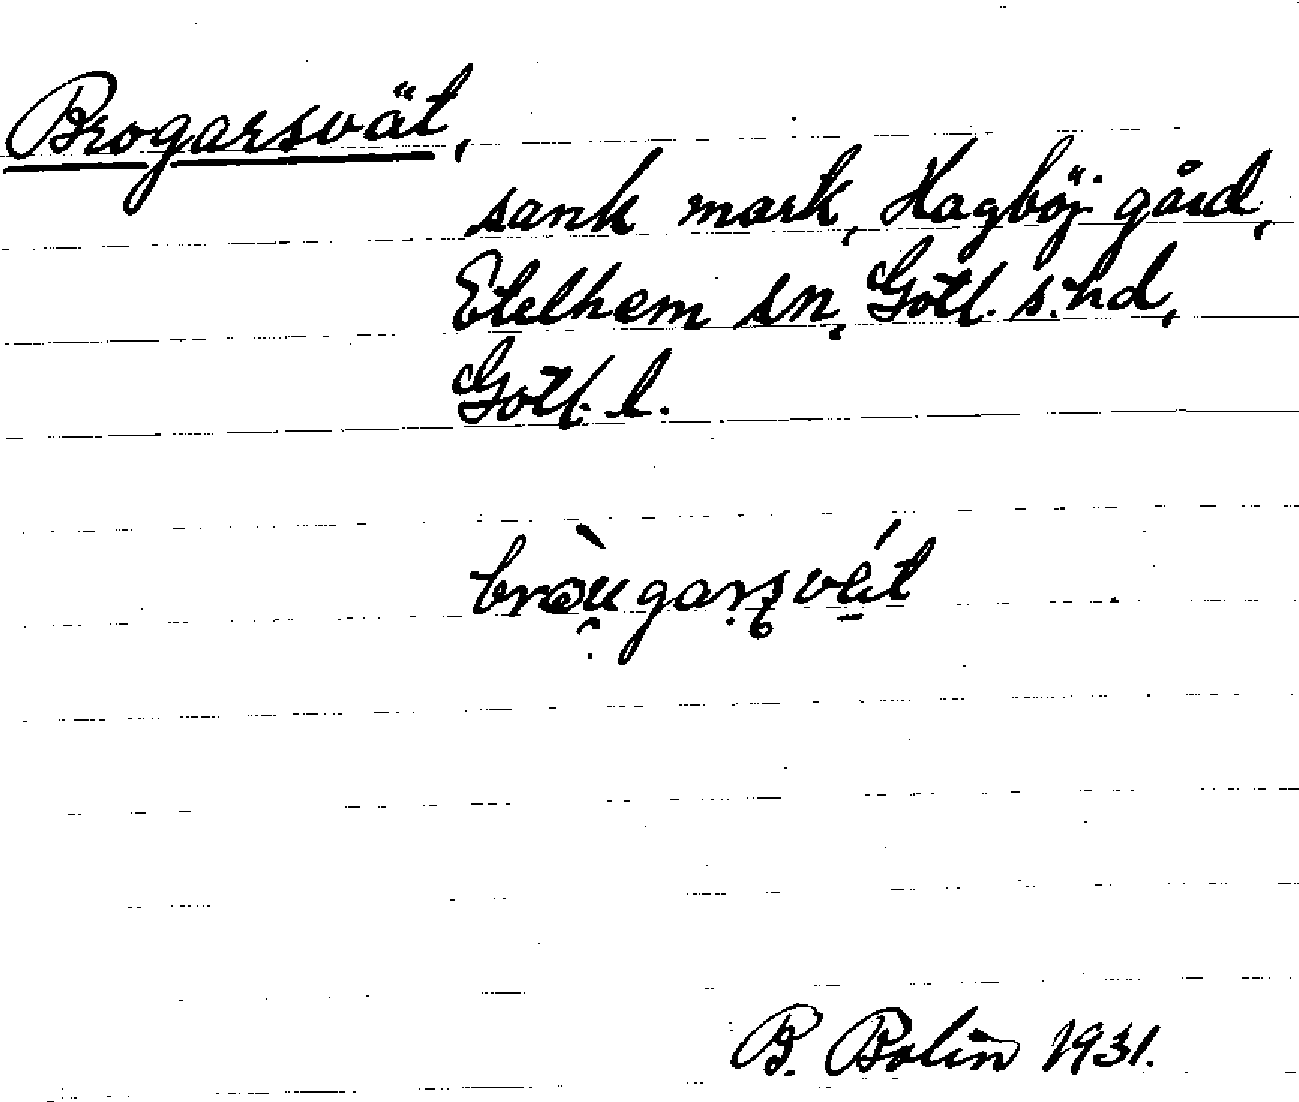 Brogarsvät,
sank mark, Hagböj gård,
Etelhem sn, Gotl. s. hd,
Gotl. l.
B. Bolin 1931.